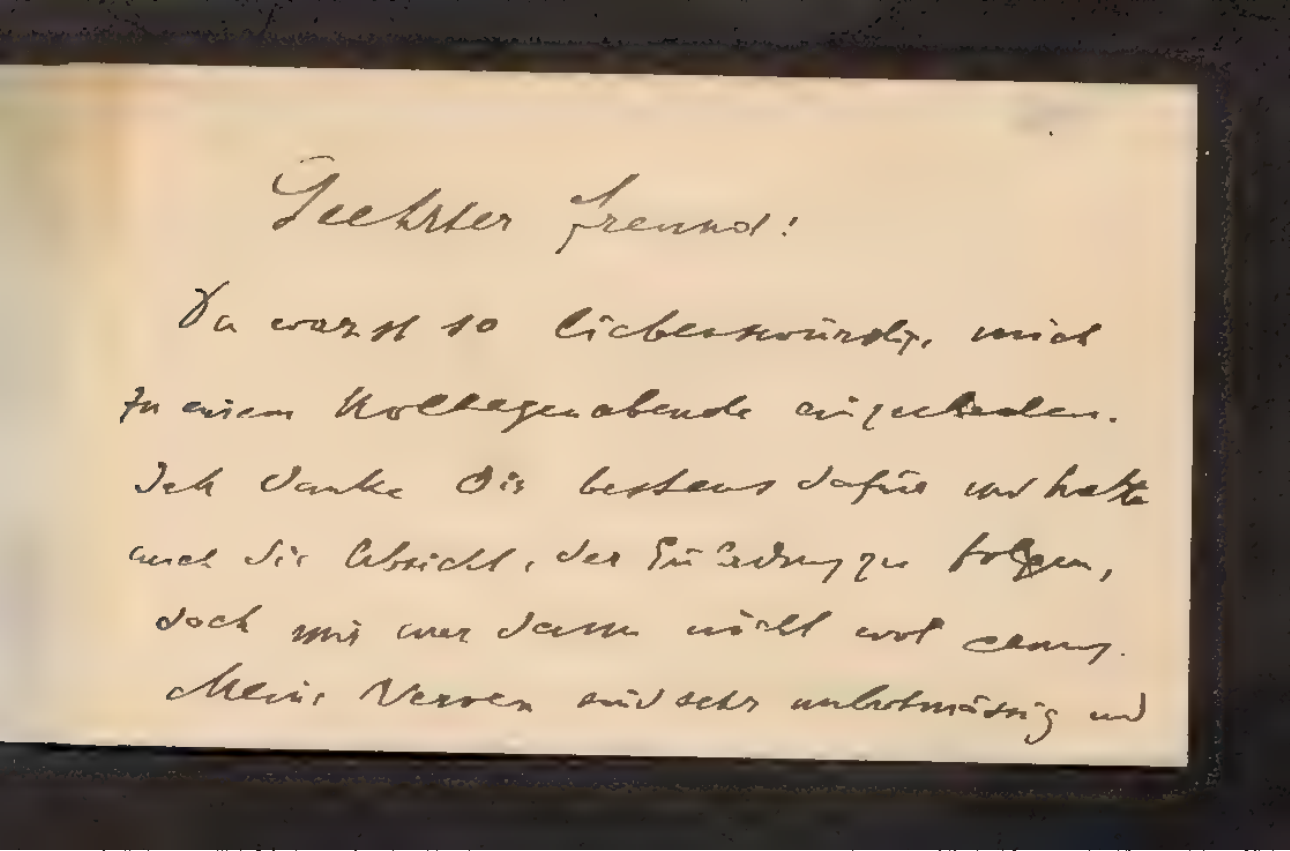 Geehrter Freund!
Du warst so liebenswürdig, mich
zu einem Kollegenabende einzuladen.
Ich danke Dir bestens dafür und hatte
auch die Absicht, der Einladung zu folgen,
doch mir war dann nicht wol genug.
Meine Nerven sind sehr unbotmässig und